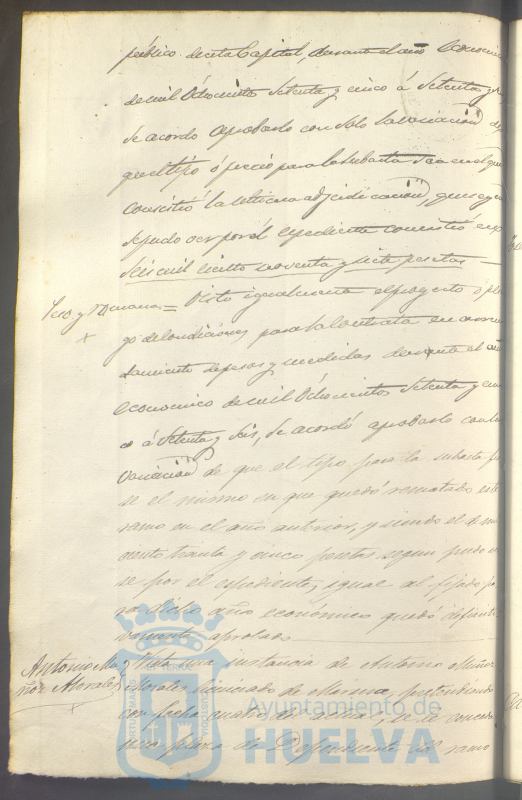 público de esta Capital, durante el año Economico
de mil Ochocientos Setenta y cinco á Setenta y
Se acordó aprobarlo con solo la variacion de
que el tipo ó precio para la subasta sea en el que
consistió la ultima adjudicacion, que segun
se pudo ver por el expediente consistió en
Seis mil ciento noventa y siete pesetas
= Visto igualmente el proyecto ó plie
go de condiciones para la contrata en arren
damiento de pesas y medidas durante el año
economico de mil Ochocientos Setenta y cin
co á Setenta y Seis, Se acordó aprobarlo con la
variacion de que el tipo para la subasta
se el mismo en que quedó rematado este
ramo en el año anterior, y siendo el de
ciento treinta y cinco pesetas segun pudo
se por el expediente, igual al fijado pa
ra dicho año económico quedó definiti
vamente aprobado
Antonio Mu
ñoz Morales
Vista una instancia de Antonio Muñoz
Morales licenciado de Marina, pretendiendo
con fecha cuatro del actual, se le conceda
una plaza de Dependiente del ramo
Ayuntamiento de
HUELVA